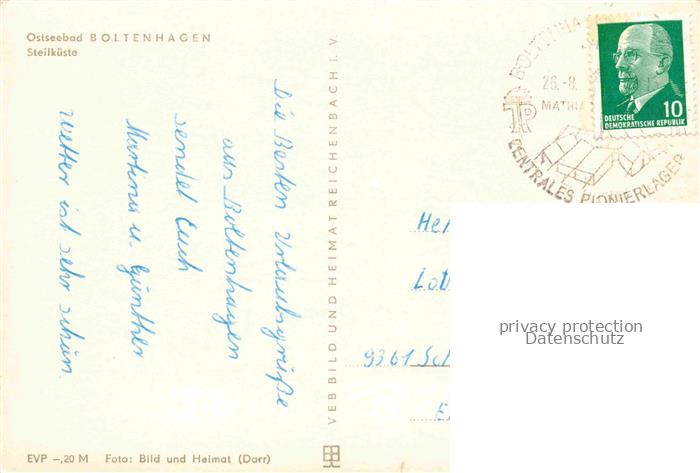 Ostseebad BOLTENHAGEN
Steilküste
Die Besten Urlaubsgrüße
aus Boltenhagen
sendet Euch
Martina u. Günther
Wetter ist sehr schön.
VEB BILD UND HEIMAT REICHENBACH I. V.
BOLTENHAGEN
26.-8.
ZENTRALES PIONIERLAGER
10
DEUTSCHE
DEMOKRATISCHE REPUBLIK
9361
privacy protection
Datenschutz
EVP –,20 M Foto: Bild und Heimat (Darr)